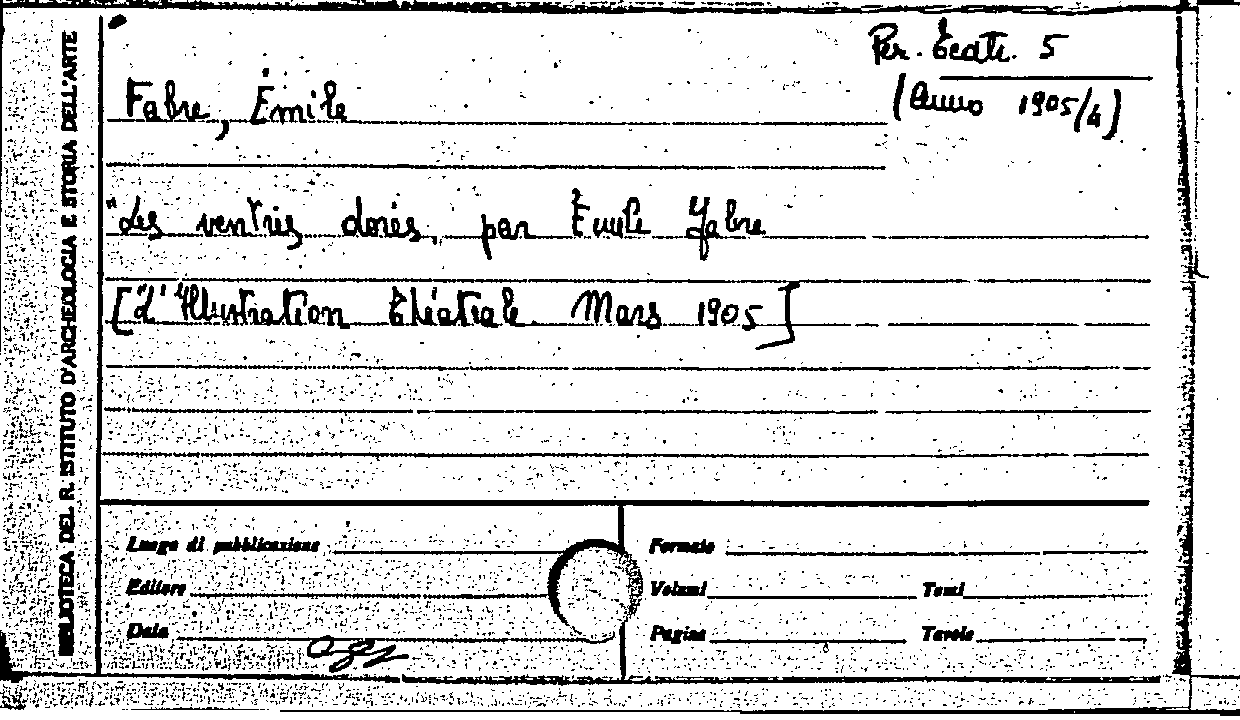 BIBLIOTECA DEL R. ISTITUTO D'ARCHEOLOGIA E STORIA DELL'ARTE
Per. Teatr. 5
(Anno 1905/4)
Fabre, Émile
"Les ventres dorés, par Émile Fabre
["L'Illustration théâtrale. Mars 1905]
Luogo di pubblicazione
Formato
Editore
Volumi Tomi
Data
Pagine Tavole